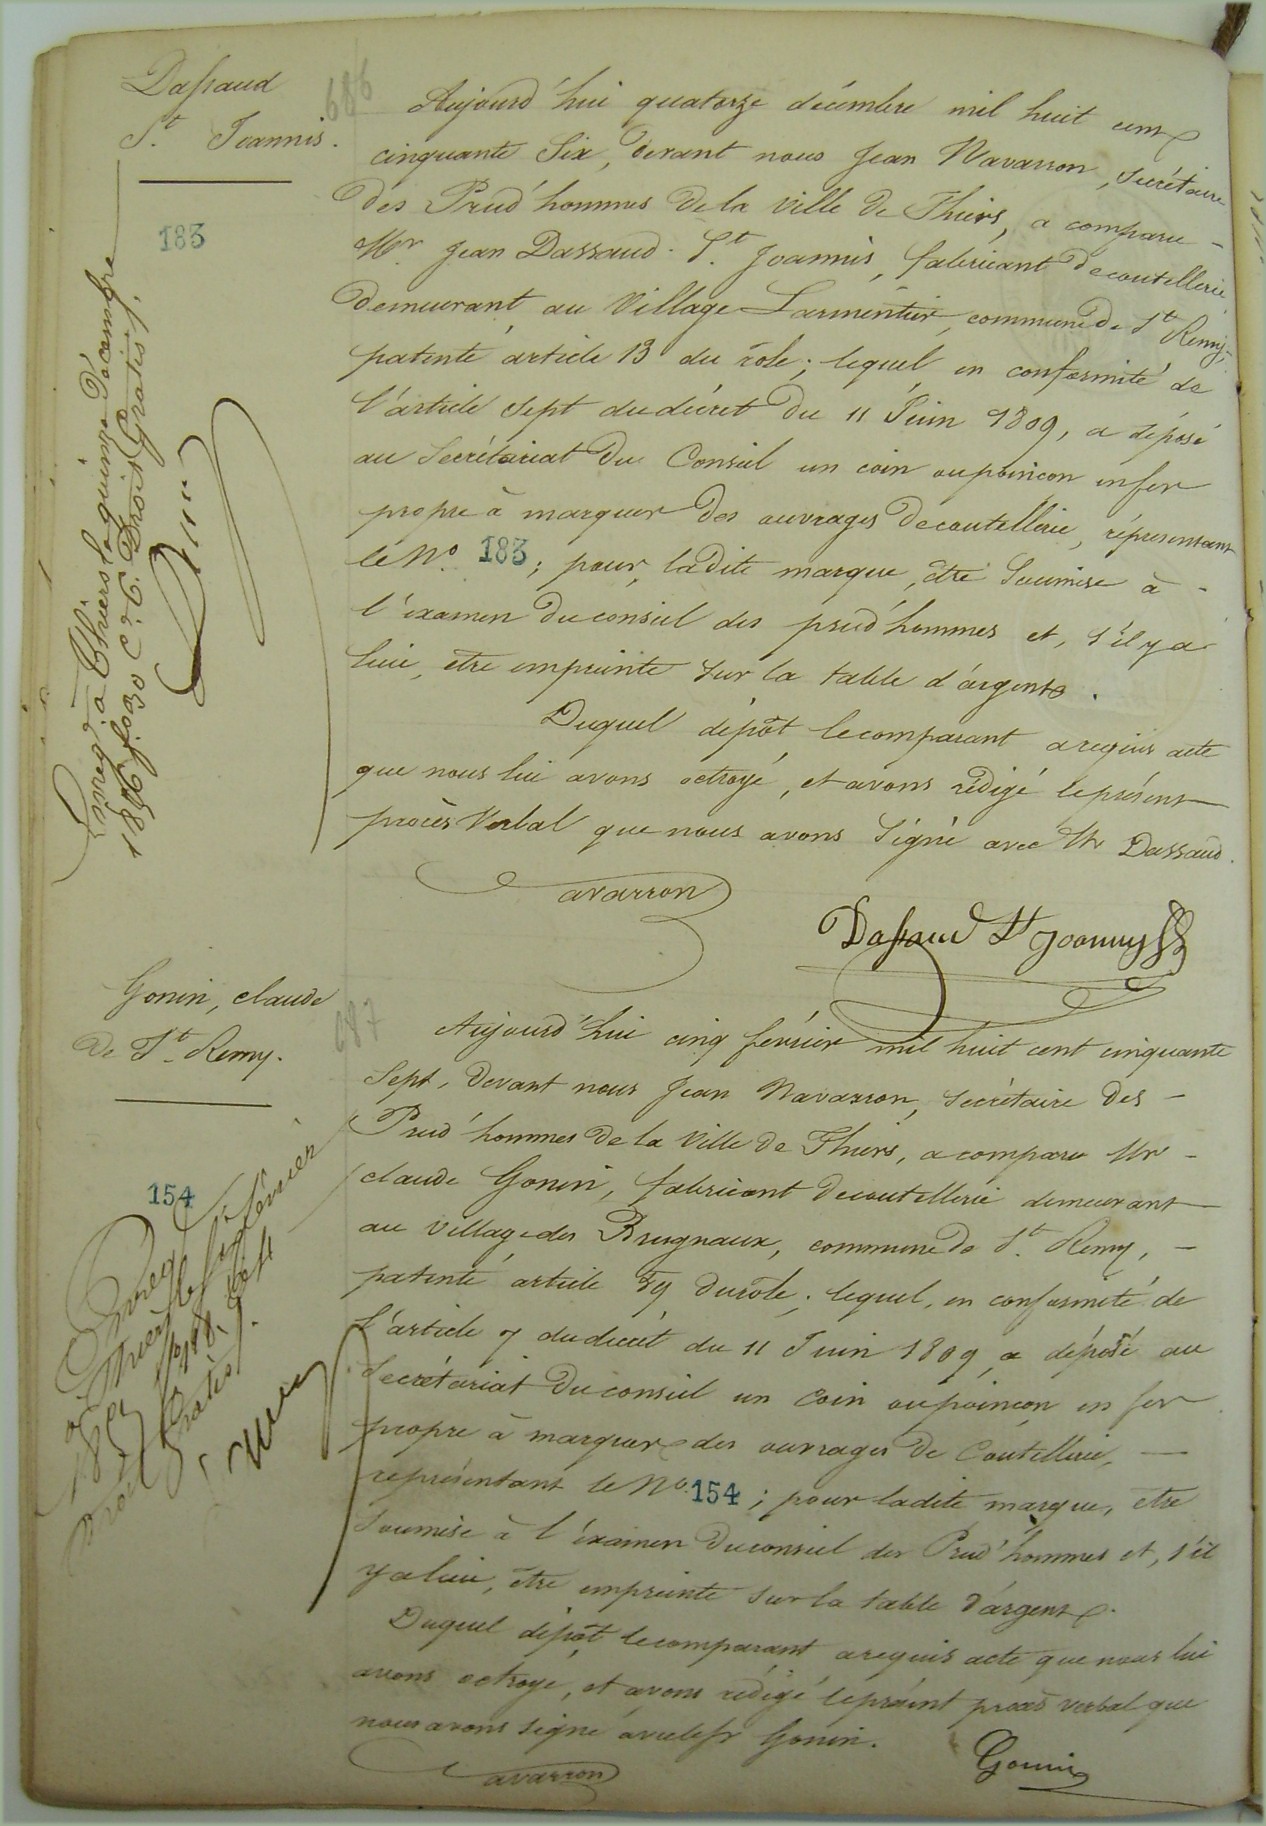 Dassaud
St Joannis.
183
686
Aujourd'hui quatorze décembre mil huit cent
cinquante Six, devant nous Jean Navarron, Sécrétaire
des Prud'hommes de la ville de Thiers, a comparu -
Mr Jean Dassaud St Joannis, fabricant de coutellerie
demeurant au Village Larmentier, commune de St Remy,
patenté article 13 du rôle; lequel en conformité de
l'article Sept du décret du 11 Juin 1809, a déposé
au Secrétariat du Conseil un coin ou poinçon en fer
propre à marquer des ouvrages de coutellerie, réprésentant
le No. 183; pour, ladite marque, être Soumise à -
l'éxamen du conseil des prud'hommes et, s'il y a
lieu, etre empreinte sur la table d'argent.
Duquel dépôt le comparant a requis acte
que nous lui avons octroyé, et avons rédigé le présent
procès Verbal que nous avons Signé avec Mr Dassaud.
Navarron
Dassaud St Joanny
Enreg. à Thiers le quinze Décembre
1856 fo 30 C. 6. Droit Gratis.
Gonin, claude
de St Remy.
154
687
Aujourd'hui cinq février mil huit cent cinquante
Sept, devant nous Jean Navarron, Sécrétaire des -
Prud'hommes de la Ville de Thiers, a comparu Mr -
claude Gonin, fabricant de coutellerie demeurant
au village des Brugnaux, commune de St Remy, -
patenté article 59 du rôle; lequel, en conformité de
l'article 7 du décret du 11 Juin 1809, a déposé au
Secrétariat du conseil un coin ou poinçon en fer
propre à marquer des ouvrages de Coutellerie, -
représentant le No. 154; pour ladite marque, etre
Soumise à l'éxamen du conseil des Prud'hommes et, s'il
y a lieu, etre empreinte sur la table d'argent.
Duquel dépôt le comparant a requis acte que nous lui
avons octroyé, et avons rédigé le présent procès verbal que
nous avons signé avec le sr Gonin.
Navarron
Gonin
Enreg
à Thiers le six février
Droit Gratis.